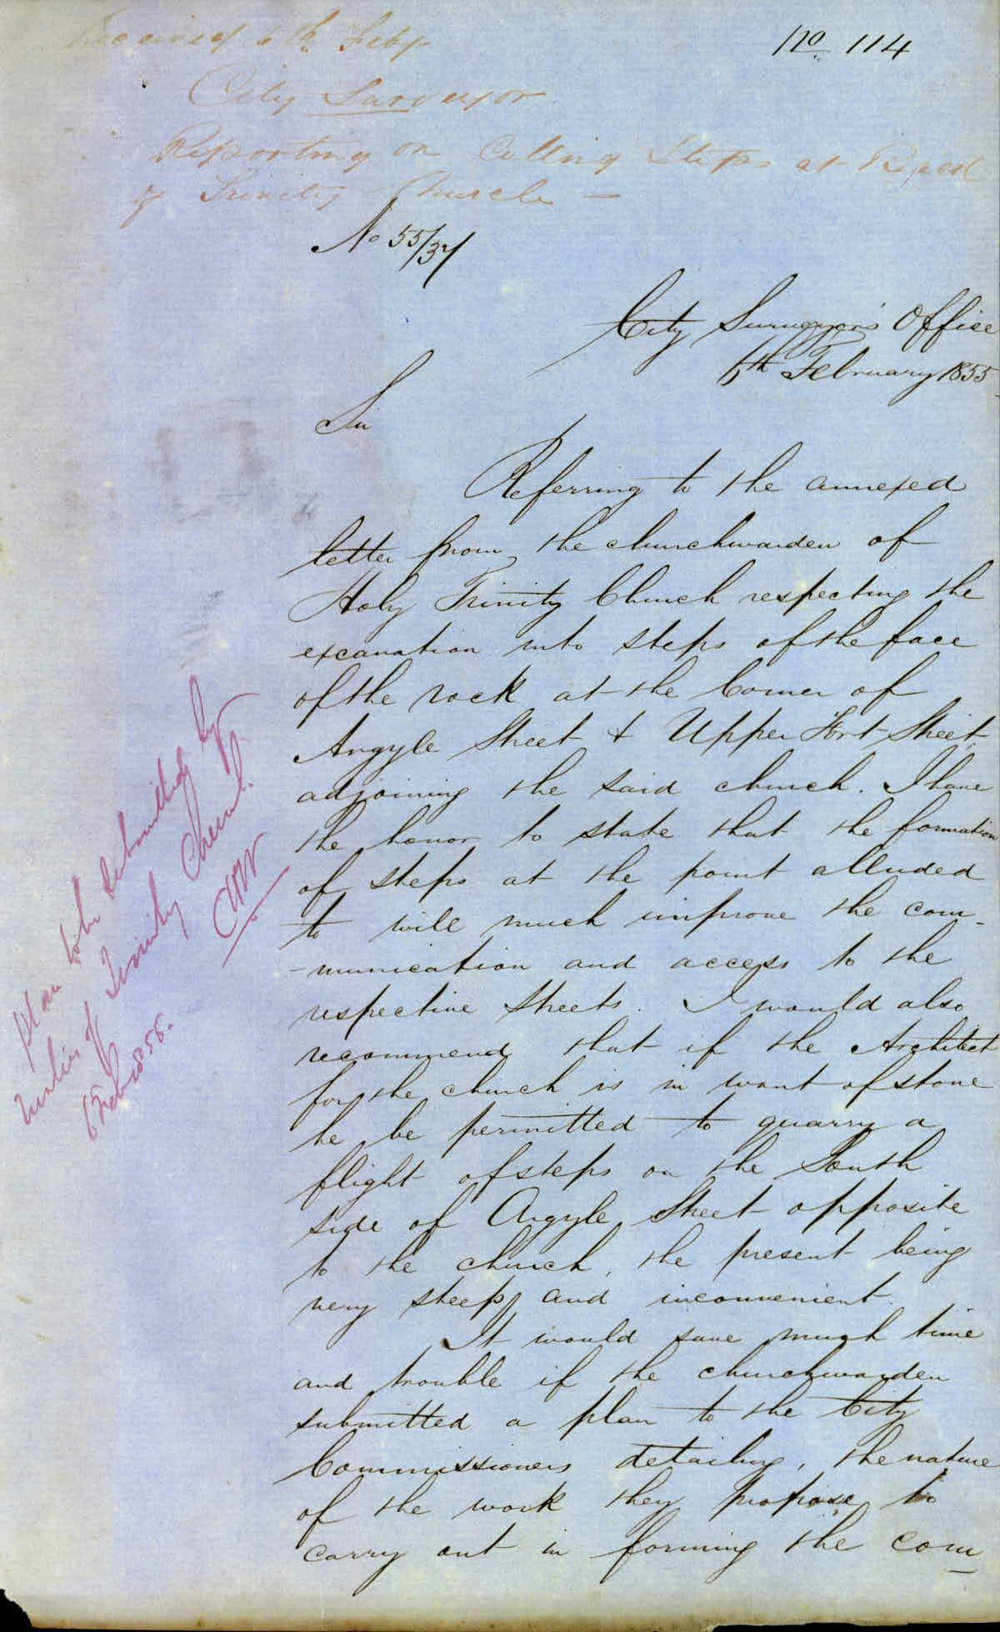 Received 6th Feby
No 114
City Surveyor
Reporting on Cutting Steps at
of Trinity Church —
No 55/37
City Surveyor's Office
6th February 1855
Sir
Referring to the annexed
letter from the churchwarden of
Holy Trinity Church respecting the
excavation into steps of the face
of the rock at the Corner of
Argyle Street & Upper Fort Street
adjoining the said church. I have
the honor to state that the formation
of steps at the point alluded
to will much improve the com-
-munication and access to the
respective Streets. I would also
recommend that if the Architect
for the church is in want of stone
he be permitted to quarry a
flight of steps on the South
side of Argyle Street opposite
to the church, the present being
very steep and inconvenient.
It would save much time
and trouble if the churchwarden
submitted a plan to the City
Commissioners detailing, the nature
of the work they propose to
carry out in forming the com
plan to be submitted by
of Trinity Church.
6 Feb 1855.